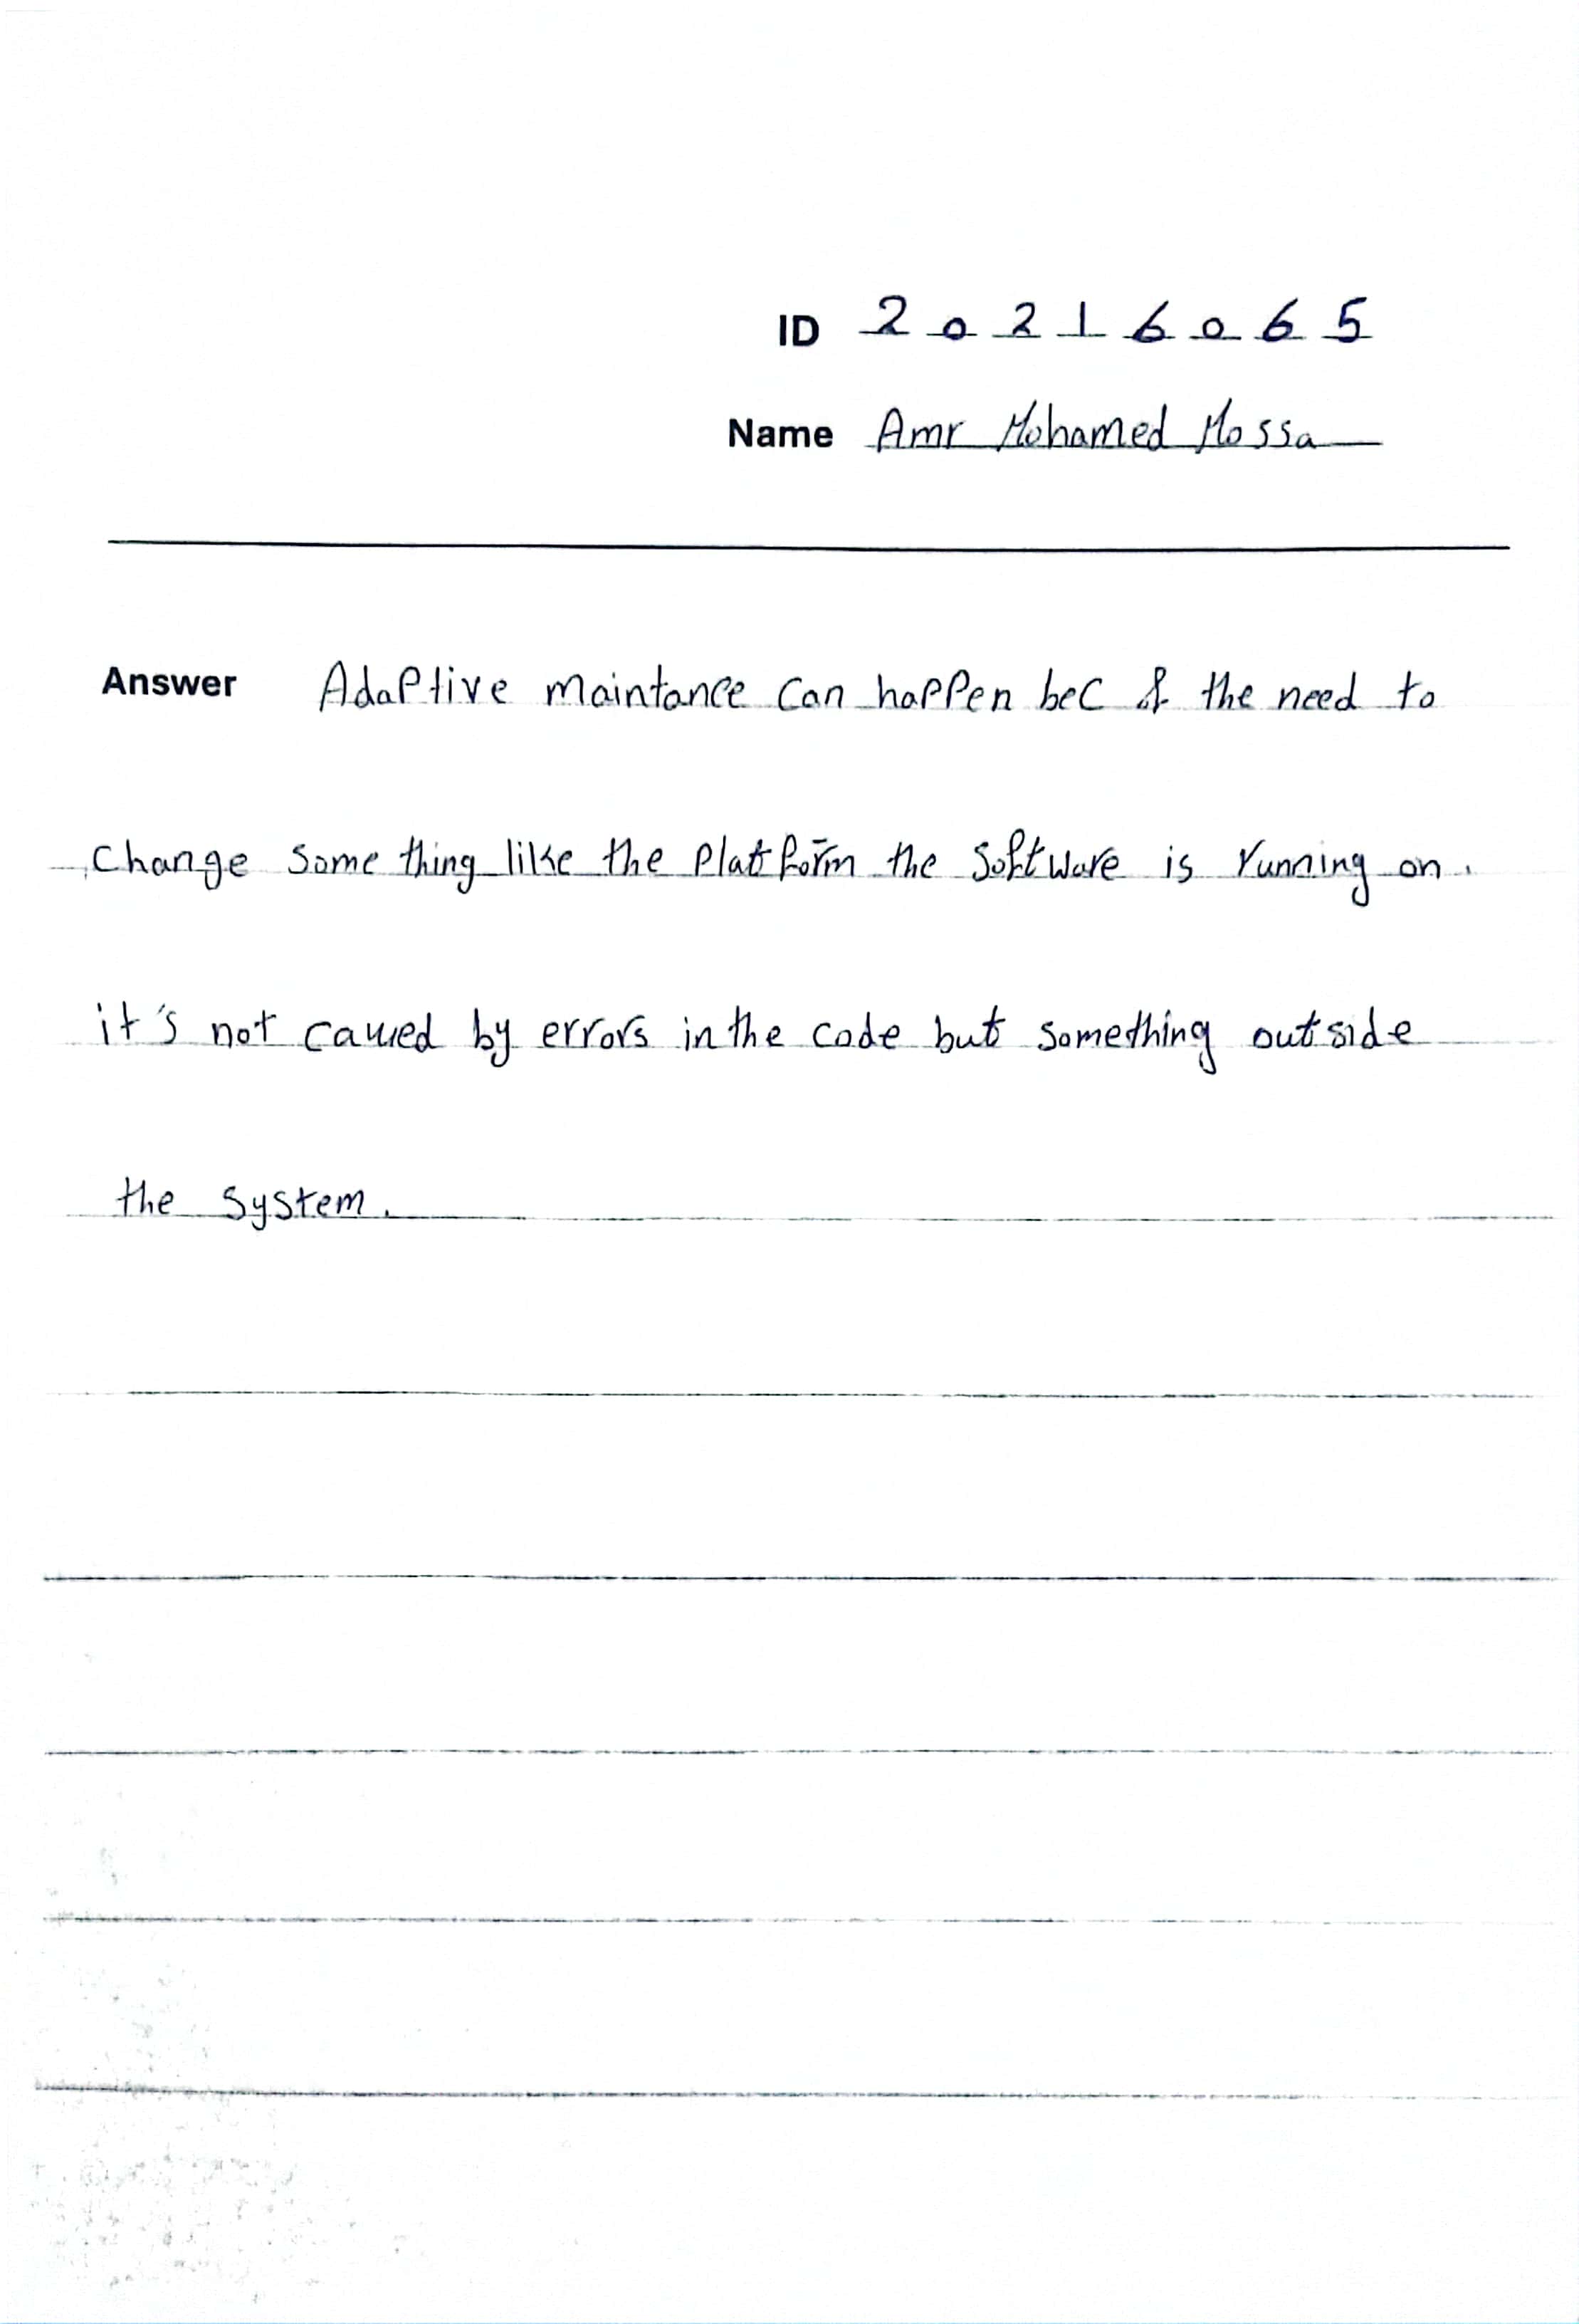 ID 20216065
Name Amr Mohamed Mossa
Answer Adaptive maintance can happen bec of the need to
change some thing like the platform the software is running on.
it's not caused by errors in the code but something outside
the system.